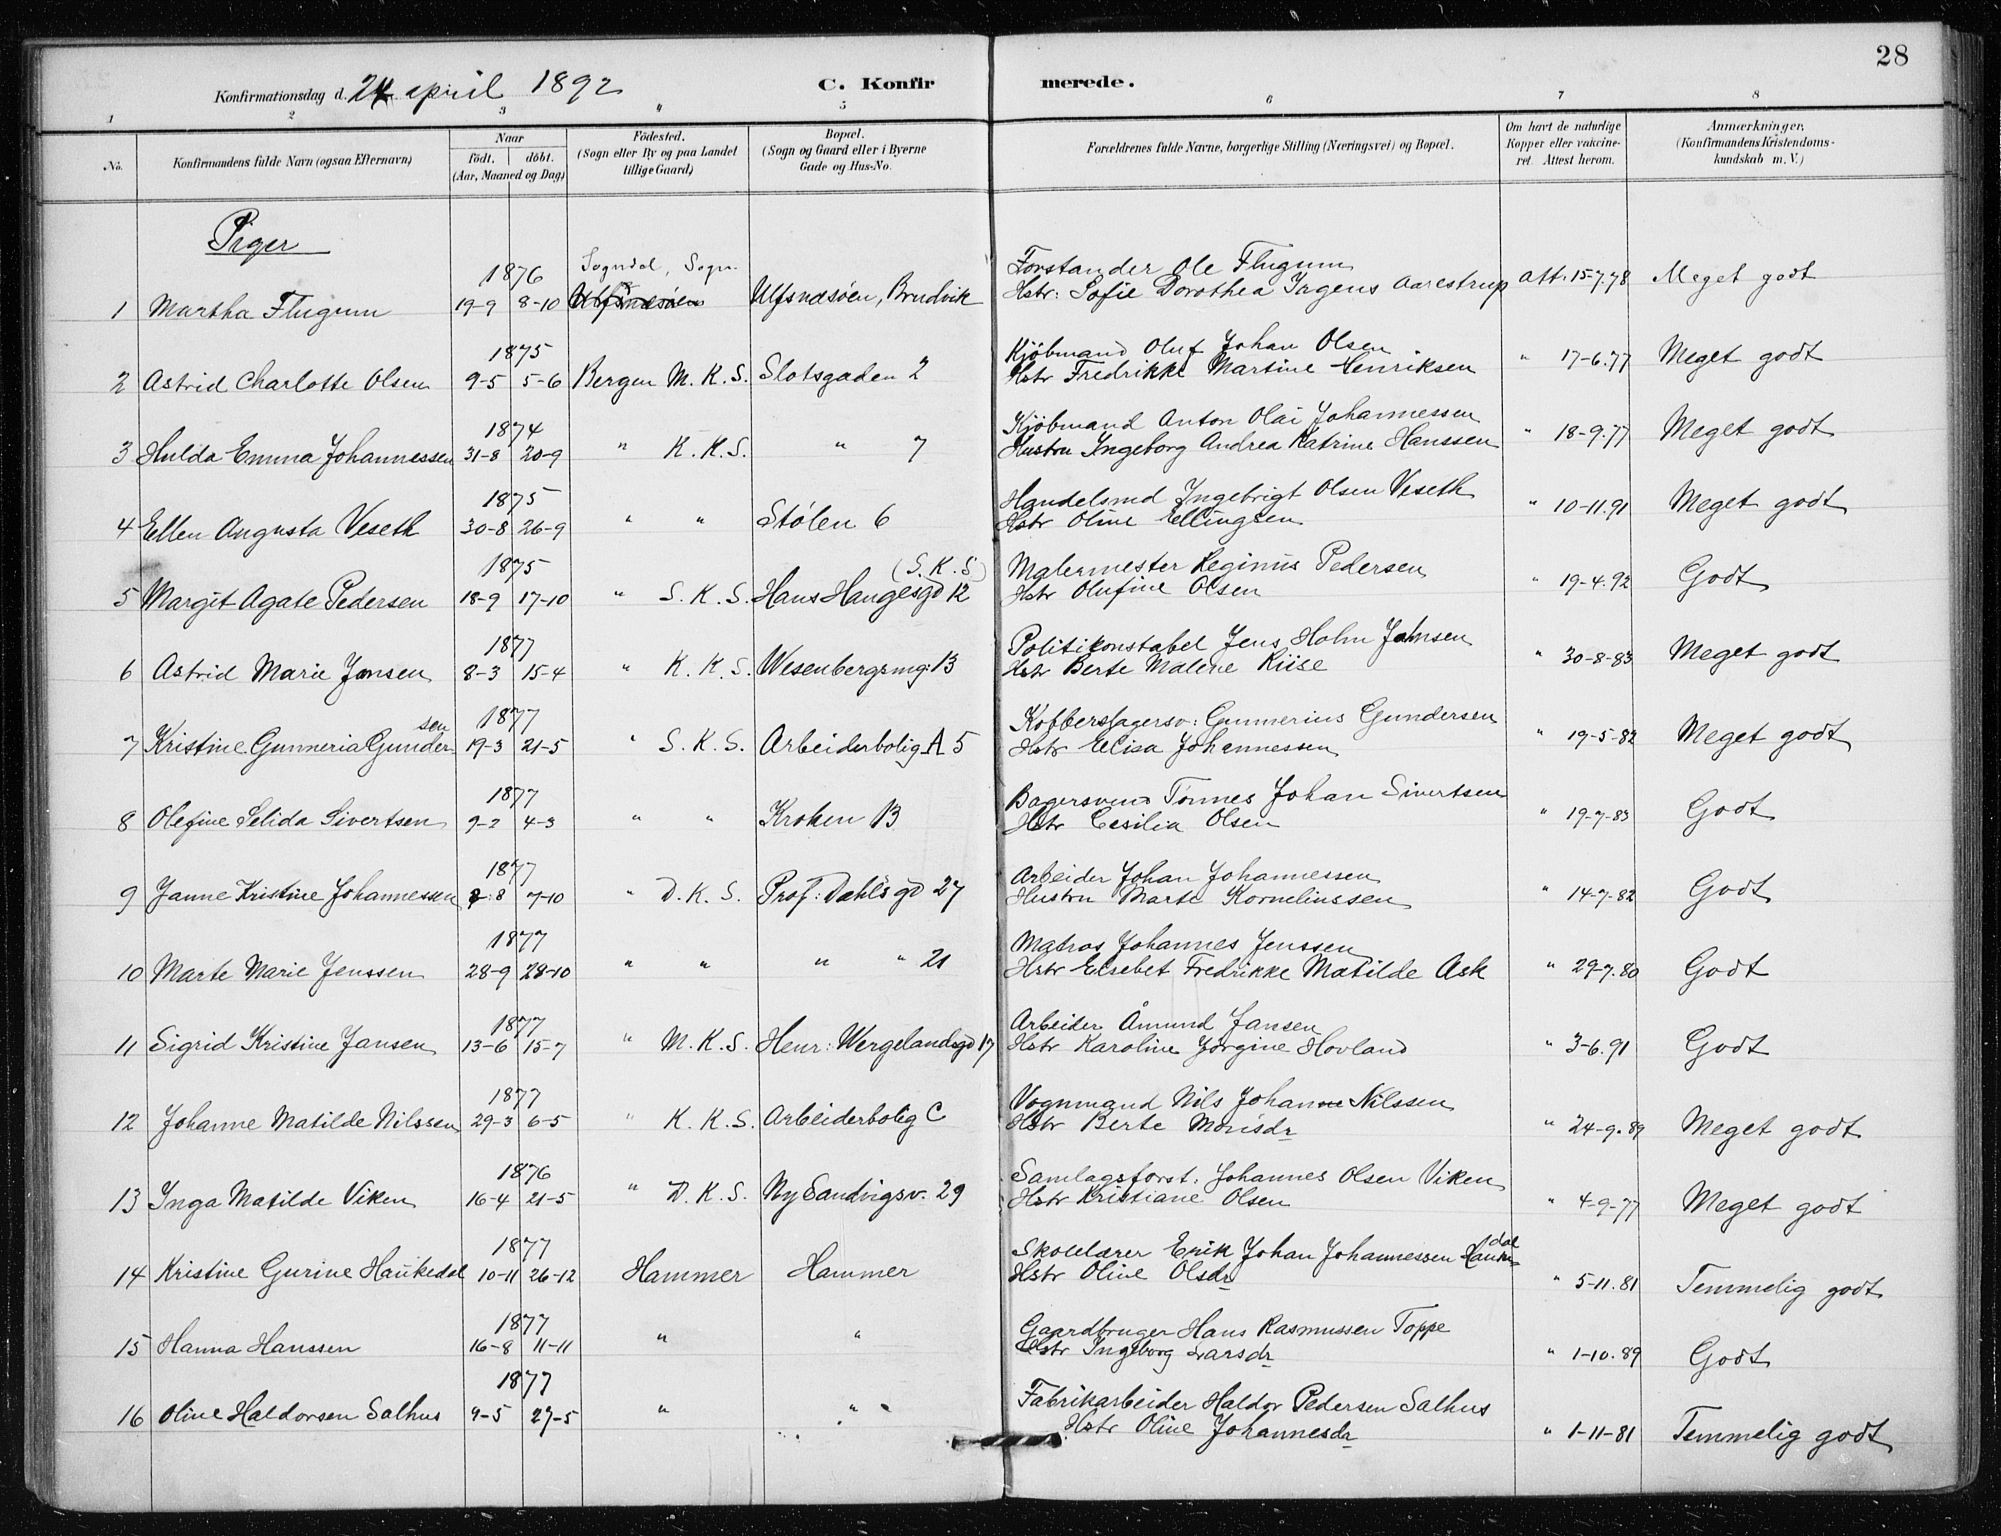 28
Konfirmationsdag d. 24 april 1892 C. Konfirmerede.
1 2 3 4 5 6 7 8
No. Konfirmandens fulde Navn (ogsaa Efternavn) Naar født. døbt. (Aar, Maaned og Dag) Fødested. (Sogn eller By og paa Landet tillige Gaard) Bopæl. (Sogn og Gaard eller i Byerne Gade og Hus-No. Forældrenes fulde Navne, borgerlige Stilling (Næringsvei) og Bopæl. Om havt de naturlige Kopper eller vaccineret. Attest herom. Anmærkninger. (Konfirmandens Kristendomskundskab m. V.)
Piger
1876 Sogndal, Sogn. Forstander Ole Flugum
1 Martha Flugum 19-9 8-10 Ulfsnæsøen Ulfsnæsøen, Bruvik Hstr: Sofie Dorothea Irgens Aarestrup Att. 15-7.78 Meget godt
1875 Kjøbmand Oluf Johan Olsen
2 Astrid Charlotte Olsen 9-5 5-6 Bergen M. K. S. Slotsgaden 2 Hstr Fredrikke Martine Henriksen " 17-6.77 Meget godt
1874 Kjøbmand Anton Olai Johannessen
3 Hulda Emma Johannessen 31-8 20-9 " K. K. S. " 7 Hustru Ingeborg Andrea Katrine Hanssen " 18-9.77 Meget godt
1875 Handelsmd Ingebrigt Olsen Veseth
4 Ellen Augusta Veseth 30-8 26-9 " " Stølen 6 Hstr Oline Ellingsen " 10-11.91 Meget godt
1875 (S. K. S) Malermester Reginius Pedersen
5 Margit Agate Pedersen 18-9 17-10 " S. K. S. Hans Haugesgd 12 Hstr Olufine Olsen " 19-4.92 Godt
1877 Politikonstabel Jens Holm Jansen
6 Astrid Marie Jansen 8-3 15-4 " K. K. S. Wesenbergsmg: 13 Hstr Berte Malene Kiise " 30-8-83 Meget godt
sen 1877 Kobberslagersv: Gunnerius Gundersen
7 Kristine Gunneria Gunder 19-3 21-5 " S. K. S. Arbeiderbolig A 5 Hstr Elisa Johannessen " 19-5-82 Meget godt
1877 Bagersvend Tønnes Johan Sivertsen
8 Olefine Selida Sivertsen 9-2 4-3 " " Kroken 13 Hstr Cesilia Olsen " 19-7-83 Godt
1877 Arbeider Johan Johannessen
9 Janne Kristine Johannessen 8 7-10 " D. K. S. Prof: Dahls gd 27 Hustru Marte Korneliussen " 14-7-82 Godt
1877 Matros Johannes Jenssen
10 Marte Marie Jenssen 28-9 28-10 " " " " 21 Hstr Elsebet Fredrikke Matilde Ask " 29-7.80 Godt
1877 Arbeider Åmund Jansen
11 Sigrid Kristine Jansen 13-6 15-7 " M. K. S. Henr: Wergelandsgd 17 Hstr Karoline Jørgine Hovland " 3-6.91 Godt
1877 Vognmand Nils Johan Nilssen
12 Johanne Matilde Nilssen 29-3 6-5 " K. K. S. Arbeiderbolig C Hstr Berte Monsdr " 24-9.89 Meget godt
1876 Samlagsforst: Johannes Olsen Viken
13 Inga Matilde Viken 16-4 21-5 " D. K. S. Ny Sandvigsv. 29 Hstr Kristiane Olsen " 4-9-77 Meget godt
1877 Skolelærer Erik Johan Johannessen Haukedal
14 Kristine Gurine Haukedal 10-11 26-12 Hammer Hammer Hstr Oline Olsdr " 5-11.81 Temmelig godt
1877 Gaardbruger Hans Rasmussen Toppe
15 Hanna Hanssen 16-8 11-11 " " Hstr Ingeborg Larsdr " 1-10.89 Godt
1877 Fabrikarbeider Haldor Pedersen Salhus
16 Oline Haldorsen Salhus 9-5 27-5 " " Hstr Oline Johannesdr " 1-11-81 Temmelig godt